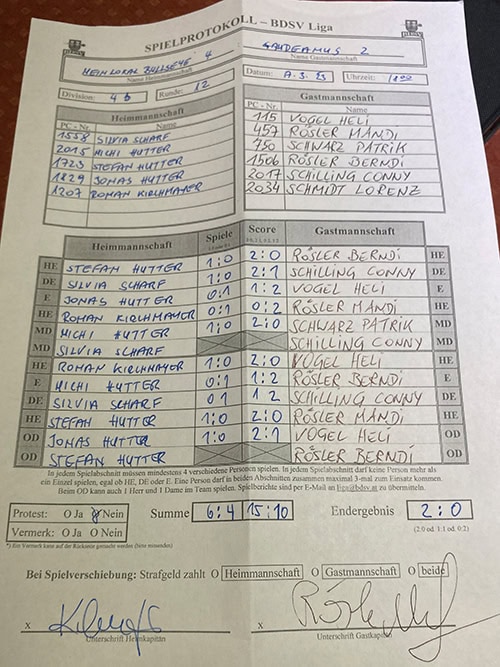 SPIELPROTOKOLL – BDSV Liga
HEIMLOKAL BULLSEYE 4 GAUDEAMUS 2
Name Heimmannschaft Name Gastmannschaft
Division: 4b Runde: 12 Datum: 7.3.23 Uhrzeit:
Heimmannschaft Gastmannschaft
PC - Nr. Name PC - Nr. Name
1558 SILVIA SCHARF 115 VOGEL HELI
2015 MICHI HUTTER 457 RÖSLER MANDI
1723 STEFAN HUTTER 750 SCHWARZ PATRIK
1829 JONAS HUTTER 1506 RÖSLER BERNDI
1207 ROMAN KIRCHMAYER 2017 SCHILLING CONNY
2034 SCHMIDT LORENZ
Heimmannschaft Spiele Score Gastmannschaft
HE STEFAN HUTTER 1:0 2:0 RÖSLER BERNDI HE
DE SILVIA SCHARF 1:0 2:1 SCHILLING CONNY DE
E JONAS HUTTER 0:1 1:2 VOGEL HELI E
HE ROMAN KIRCHMAYER 0:1 0:2 RÖSLER MANDI HE
MD MICHI HUTTER 1:0 2:0 SCHWARZ PATRIK MD
MD SILVIA SCHARF SCHILLING CONNY MD
HE ROMAN KIRCHMAYER 1:0 2:0 VOGEL HELI HE
E MICHI HUTTER 0:1 1:2 RÖSLER BERNDI E
DE SILVIA SCHARF 0 1 1 2 SCHILLING CONNY DE
HE STEFAN HUTTER 1:0 2:0 RÖSLER MANDI HE
OD JONAS HUTTER 1:0 2:1 VOGEL HELI OD
OD STEFAN HUTTER RÖSLER BERNDI OD
In jedem Spielabschnitt müssen mindestens 4 verschiedene Personen spielen. In jedem Spielabschnitt darf keine Person mehr als
ein Einzel spielen, egal ob HE, DE oder E. Eine Person darf in beiden Abschnitten zusammen maximal 3-mal zum Einsatz kommen.
Beim OD kann auch 1 Herr und 1 Dame im Team spielen. Spielberichte sind per E-Mail an liga@bdsv.at zu übermitteln.
Protest: O Ja O Nein Summe 6:4 15:10 Endergebnis 2:0
Vermerk: O Ja O Nein (2:0 od. 1:1 od. 0:2)
*) Ein Vermerk kann auf der Rückseite gemacht werden (bitte umwenden)
Bei Spielverschiebung: Strafgeld zahlt O Heimmannschaft O Gastmannschaft O beide
x x
Unterschrift Heimkapitän Unterschrift Gastkapitän